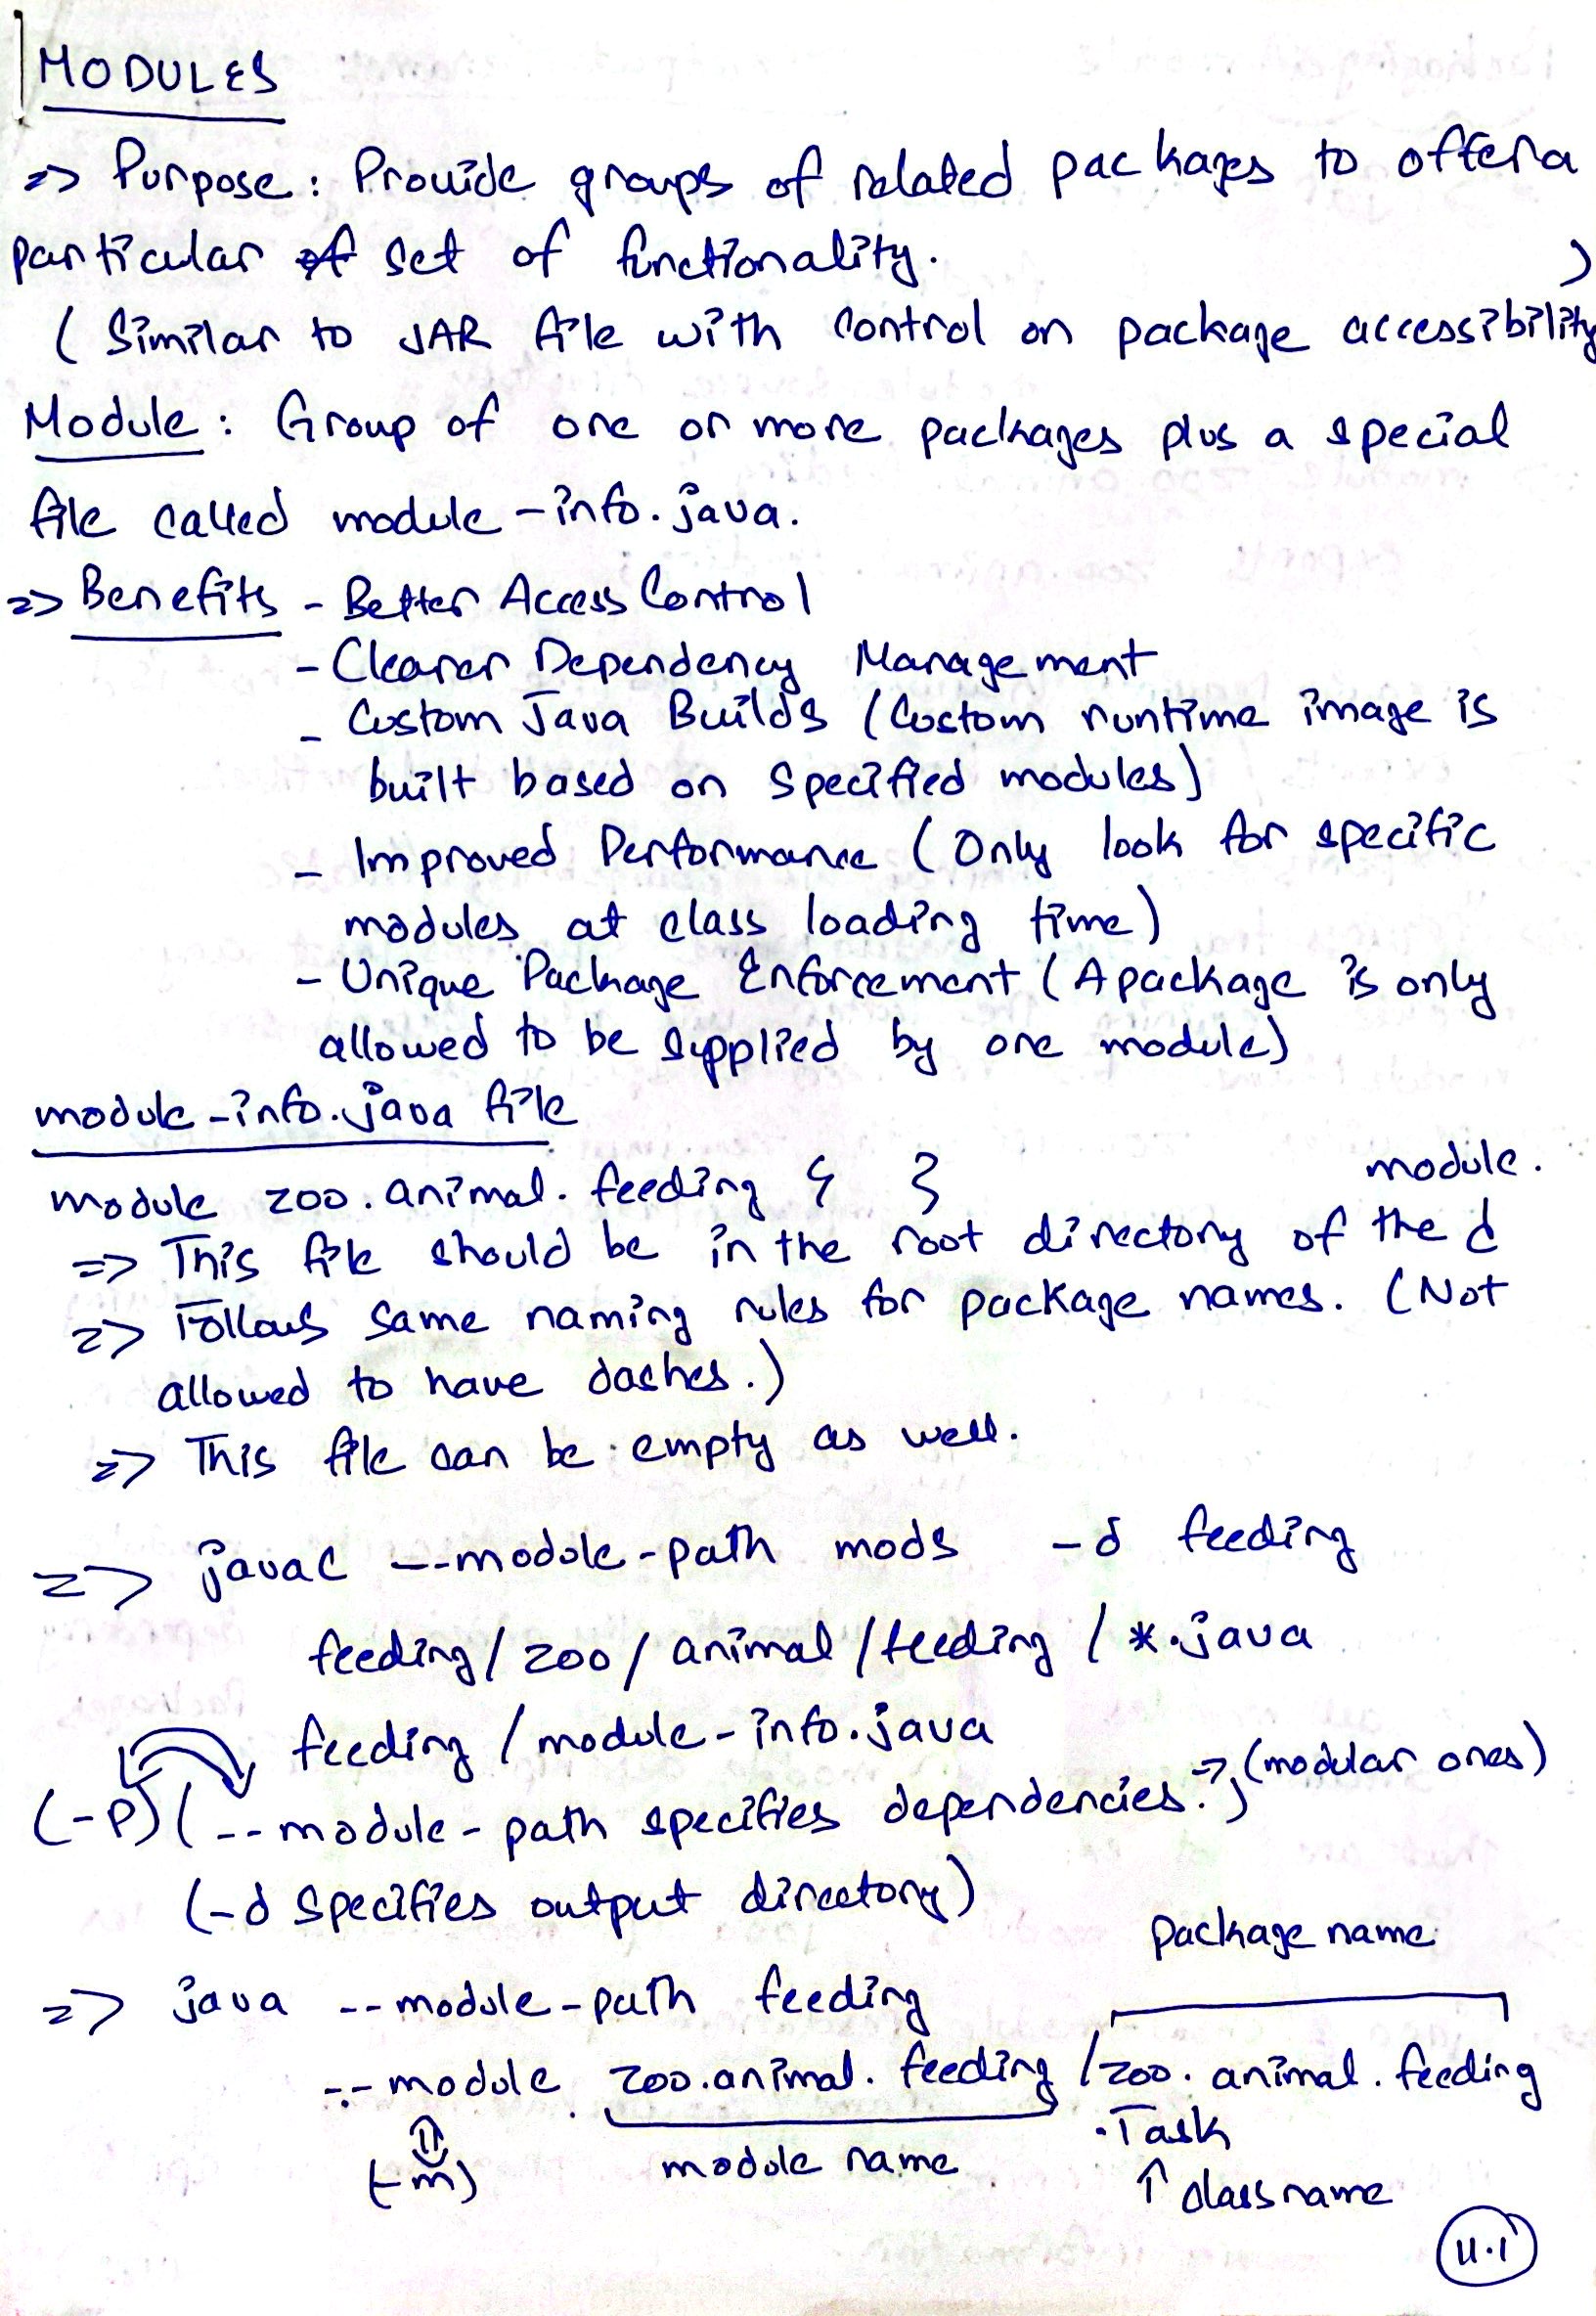 MODULES
=> Purpose: Provide groups of related packages to offer a
particular set of functionality.
(Similar to JAR file with control on package accessibility)
Module: Group of one or more packages plus a special
file called module-info.java.
=> Benefits - Better Access Control
- Clearer Dependency Management
- Custom Java Builds (Custom runtime image is
built based on specified modules)
- Improved Performance (Only look for specific
modules at class loading time)
- Unique Package Enforcement (A package is only
allowed to be supplied by one module)
module-info.java file
module zoo.animal.feeding { }
=> This file should be in the root directory of the module.
=> Follows same naming rules for package names. (Not
allowed to have dashes.)
=> This file can be empty as well.
=> javac --module-path mods -d feeding
feeding/zoo/animal/feeding/*.java
feeding/module-info.java
(-p) (--module-path specifies dependencies.) => (modular ones)
(-d specifies output directory)
package name
=> java --module-path feeding
--module zoo.animal.feeding/zoo.animal.feeding
.Task
(-m) module name
↑ classname
11.1